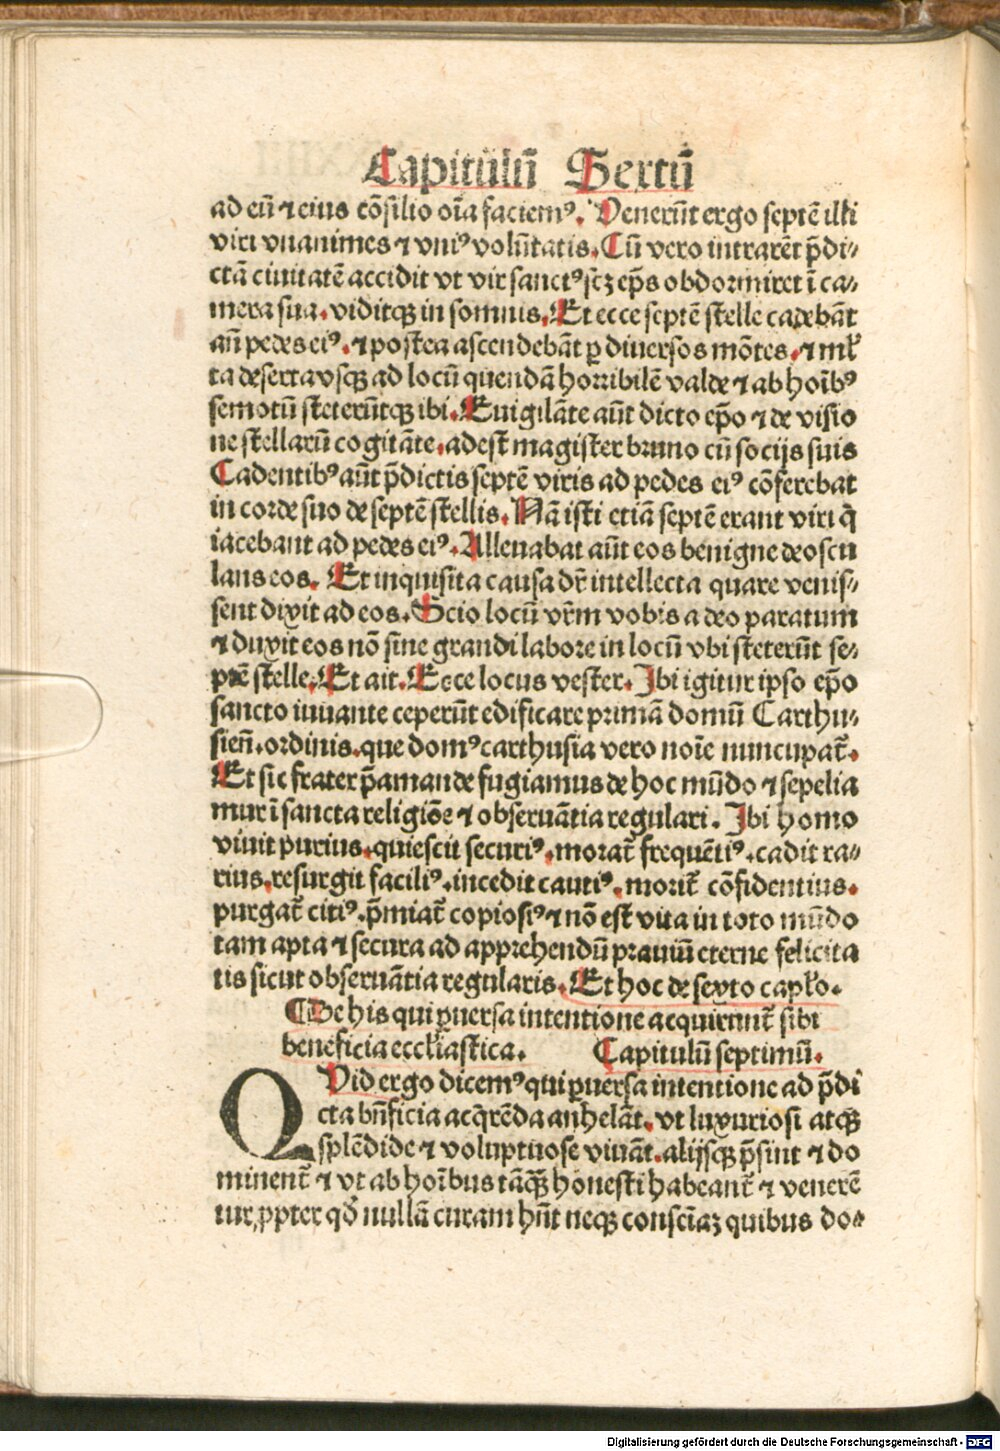 Capitulū Sextū
ad eū ⁊ eius cōsilio oīa faciemꝰ. Venerūt ergo septē illi
viri vnanimes ⁊ vniꝰ volūtatis. Cū vero intrarēt p̄di⸗
ctā ciuitatē accidit vt vir sanctꝰ scꝫ ep̄s obdormiret ī ca⸗
mera sua. viditqꝫ in somnis. Et ecce septē stelle cadebāt
añ pedes eiꝰ. ⁊ postea ascendebāt ꝑ diuersos mōtes. ⁊ ml̓
ta deserta vsqꝫ ad locū quendā horribilē valde ⁊ ab hoīb̓ꝰ
semotū steterūtqꝫ ibi. Euigilāte aūt dicto ep̄o ⁊ de visio
ne stellarū cogitāte. adest magister bruno cū socijs suis
Cadentibꝰ aūt p̄dictis septē viris ad pedes eiꝰ cōferebat
in corde suo de septē stellis. Nā isti etiā septē erant viri q̄
iacebant ad pedes eiꝰ. Alleuabat aūt eos benigne deoscu
lans eos. Et inquisita causa dr̄ intellecta quare venis⸗
sent dixit ad eos. Scio locū vr̄m vobis a deo paratum
⁊ duxit eos nō sine grandi labore in locū vbi steterūt se⸗
ptē stelle. Et ait. Ecce locus vester. Ibi igitur ipso ep̄o
sancto iuuante ceperūt edificare primā domū Carthu⸗
sieñ. ordinis. que domꝰ carthusia vero noīe nuncupat̄.
Et sic frater p̄amande fugiamus de hoc mūdo ⁊ sepelia
mur ī sancta religiōe ⁊ obseruātia regulari. Ibi homo
viuit purius. quiescit securiꝰ. morat̄ frequētiꝰ. cadit ra⸗
rius. resurgit faciliꝰ. incedit cautiꝰ. morit̄ cōfidentius.
purgat̄ citiꝰ. p̄miat̄ copiosiꝰ ⁊ nō est vita in toto mūdo
tam apta ⁊ secura ad apprehendū prauiū eterne felicita
tis sicut obseruātia regularis. Et hoc de sexto capl̓o.
De his qui ꝑuersa intentione acquirunt̄ sibi
beneficia eccl̓iastica. Capitulū septimū.
QVid ergo dicemꝰ qui ꝑuersa intentione ad p̄di
cta bn̄ficia acq̄rēda anhelāt. vt luxuriosi atqꝫ
splēdide ⁊ voluptuose viuāt. alijsqꝫ p̄sint ⁊ do
minent̄ ⁊ vt ab hoībus tāqꝫ̄ honesti habeant̄ ⁊ venerē
tur ꝓpter qd̓ nullā curam hn̄t neqꝫ consciāꝫ quibus do⸗
Digitalisierung gefördert durch die Deutsche Forschungsgemeinschaft - DFG